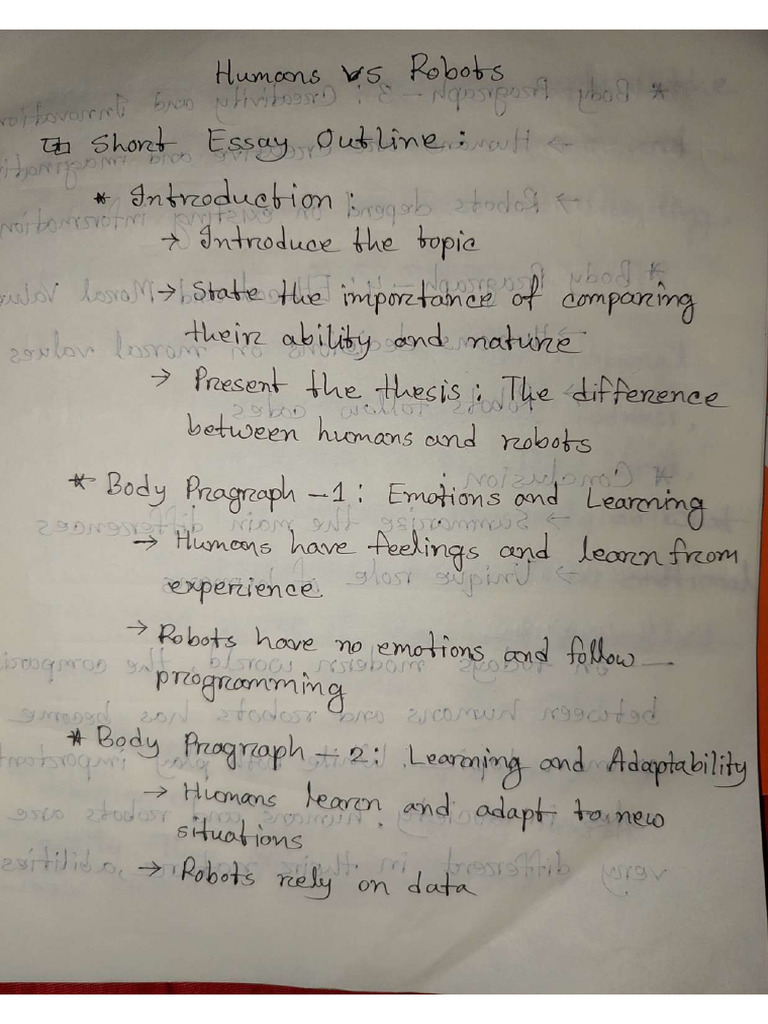 Humans vs Robots
Short Essay Outline:
* Introduction:
→ Introduce the topic
→ State the importance of comparing
their ability and nature
→ Present the thesis: The difference
between humans and robots
* Body Pragraph -1: Emotions and Learning
→ Humans have feelings and learn from
experience
→ Robots have no emotions and follow
programming
* Body Pragraph - 2: Learning and Adaptability
→ Humans learn and adapt to new
situations
→ Robots rely on data